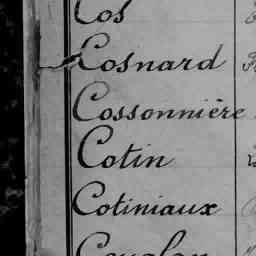 Cos
Cosnard
Cossonnière
Cotin
Cotiniaux